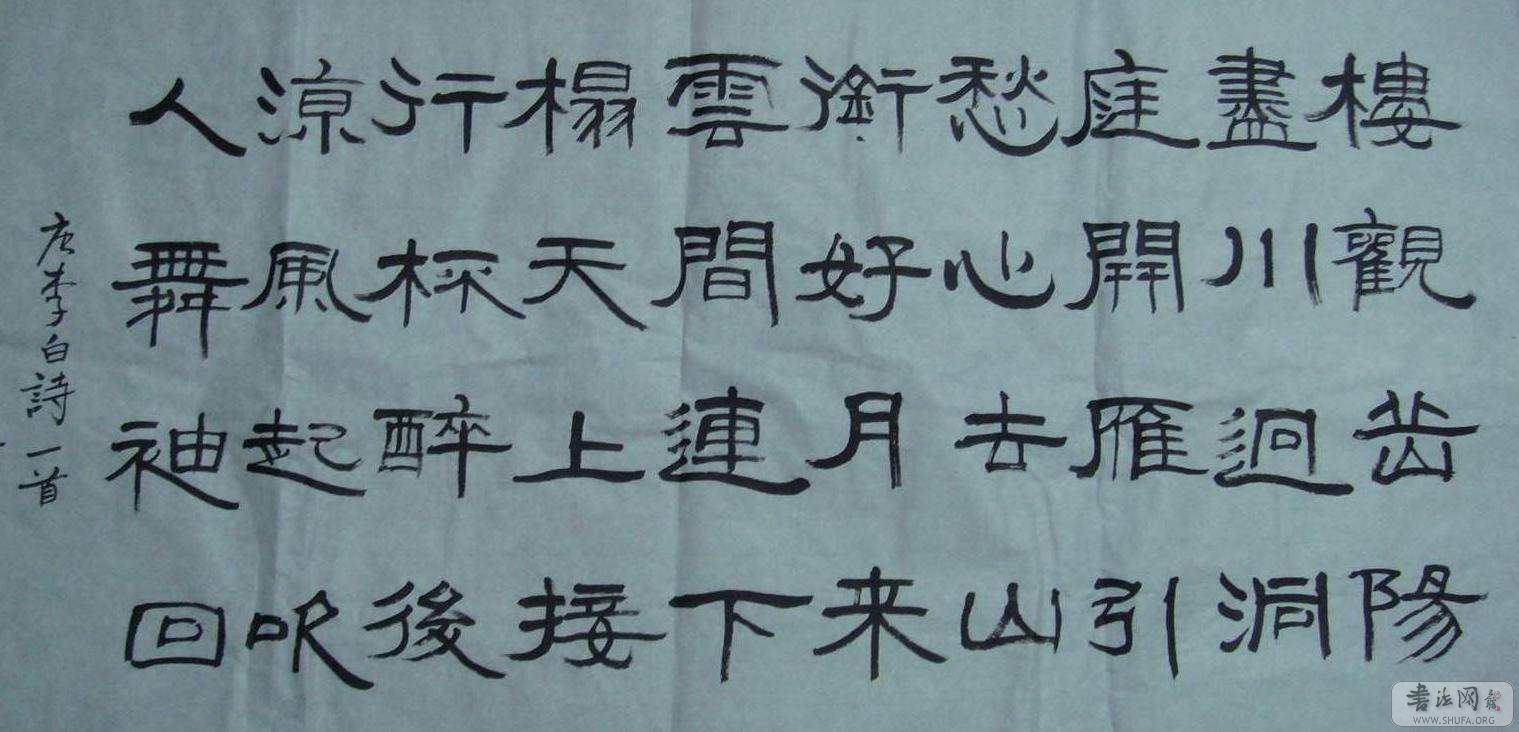 樓觀岳陽
盡川逈洞
庭開雁引
愁心去山
銜好月来
雲間連下
榻天上接
行杯醉後
涼風起吹
人舞袖回
唐李白詩一首
書法网
WWW.SHUFA.ORG